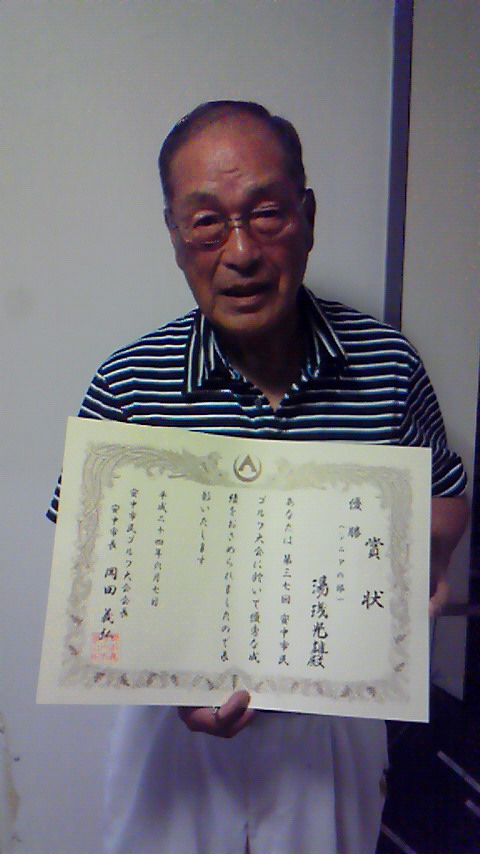 賞状
優勝
(シニアの部)
湯浅光雄殿
あなたは第三七回安中市民
ゴルフ大会に於いて優秀な成
績をおさめられましたので表
彰いたします
平成二十四年六月七日
安中市民ゴルフ大会会長
安中市長 岡田義弘